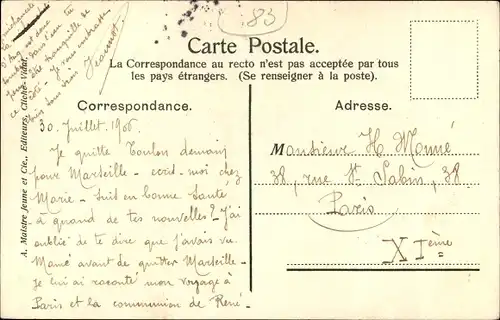 83
Carte Postale.
La Correspondance au recto n'est pas acceptée par tous
les pays étrangers. (Se renseigner à la poste).
Correspondance.
Adresse.
30. Juillet. 1906
Je quitte Toulon demain
pour Marseille - écris-moi chez
Marie - suit en bonne santé
- à quand de tes nouvelles? J'ai
oublié de te dire que j'avais vu
Mamé avant de quitter Marseille -
Je lui ai raconté mon voyage à
Paris et la communion de René.
Monsieur H. Monné
38, rue St Sabin, 38
Paris
XIème
A. Maistre Jeune et Cie., Editeurs, Cliché-Vidal.
d'Aug est donc
tombée dans l'eau tu
être tranquille de
ce côté - Je vous embrasse
tous
Jeannot